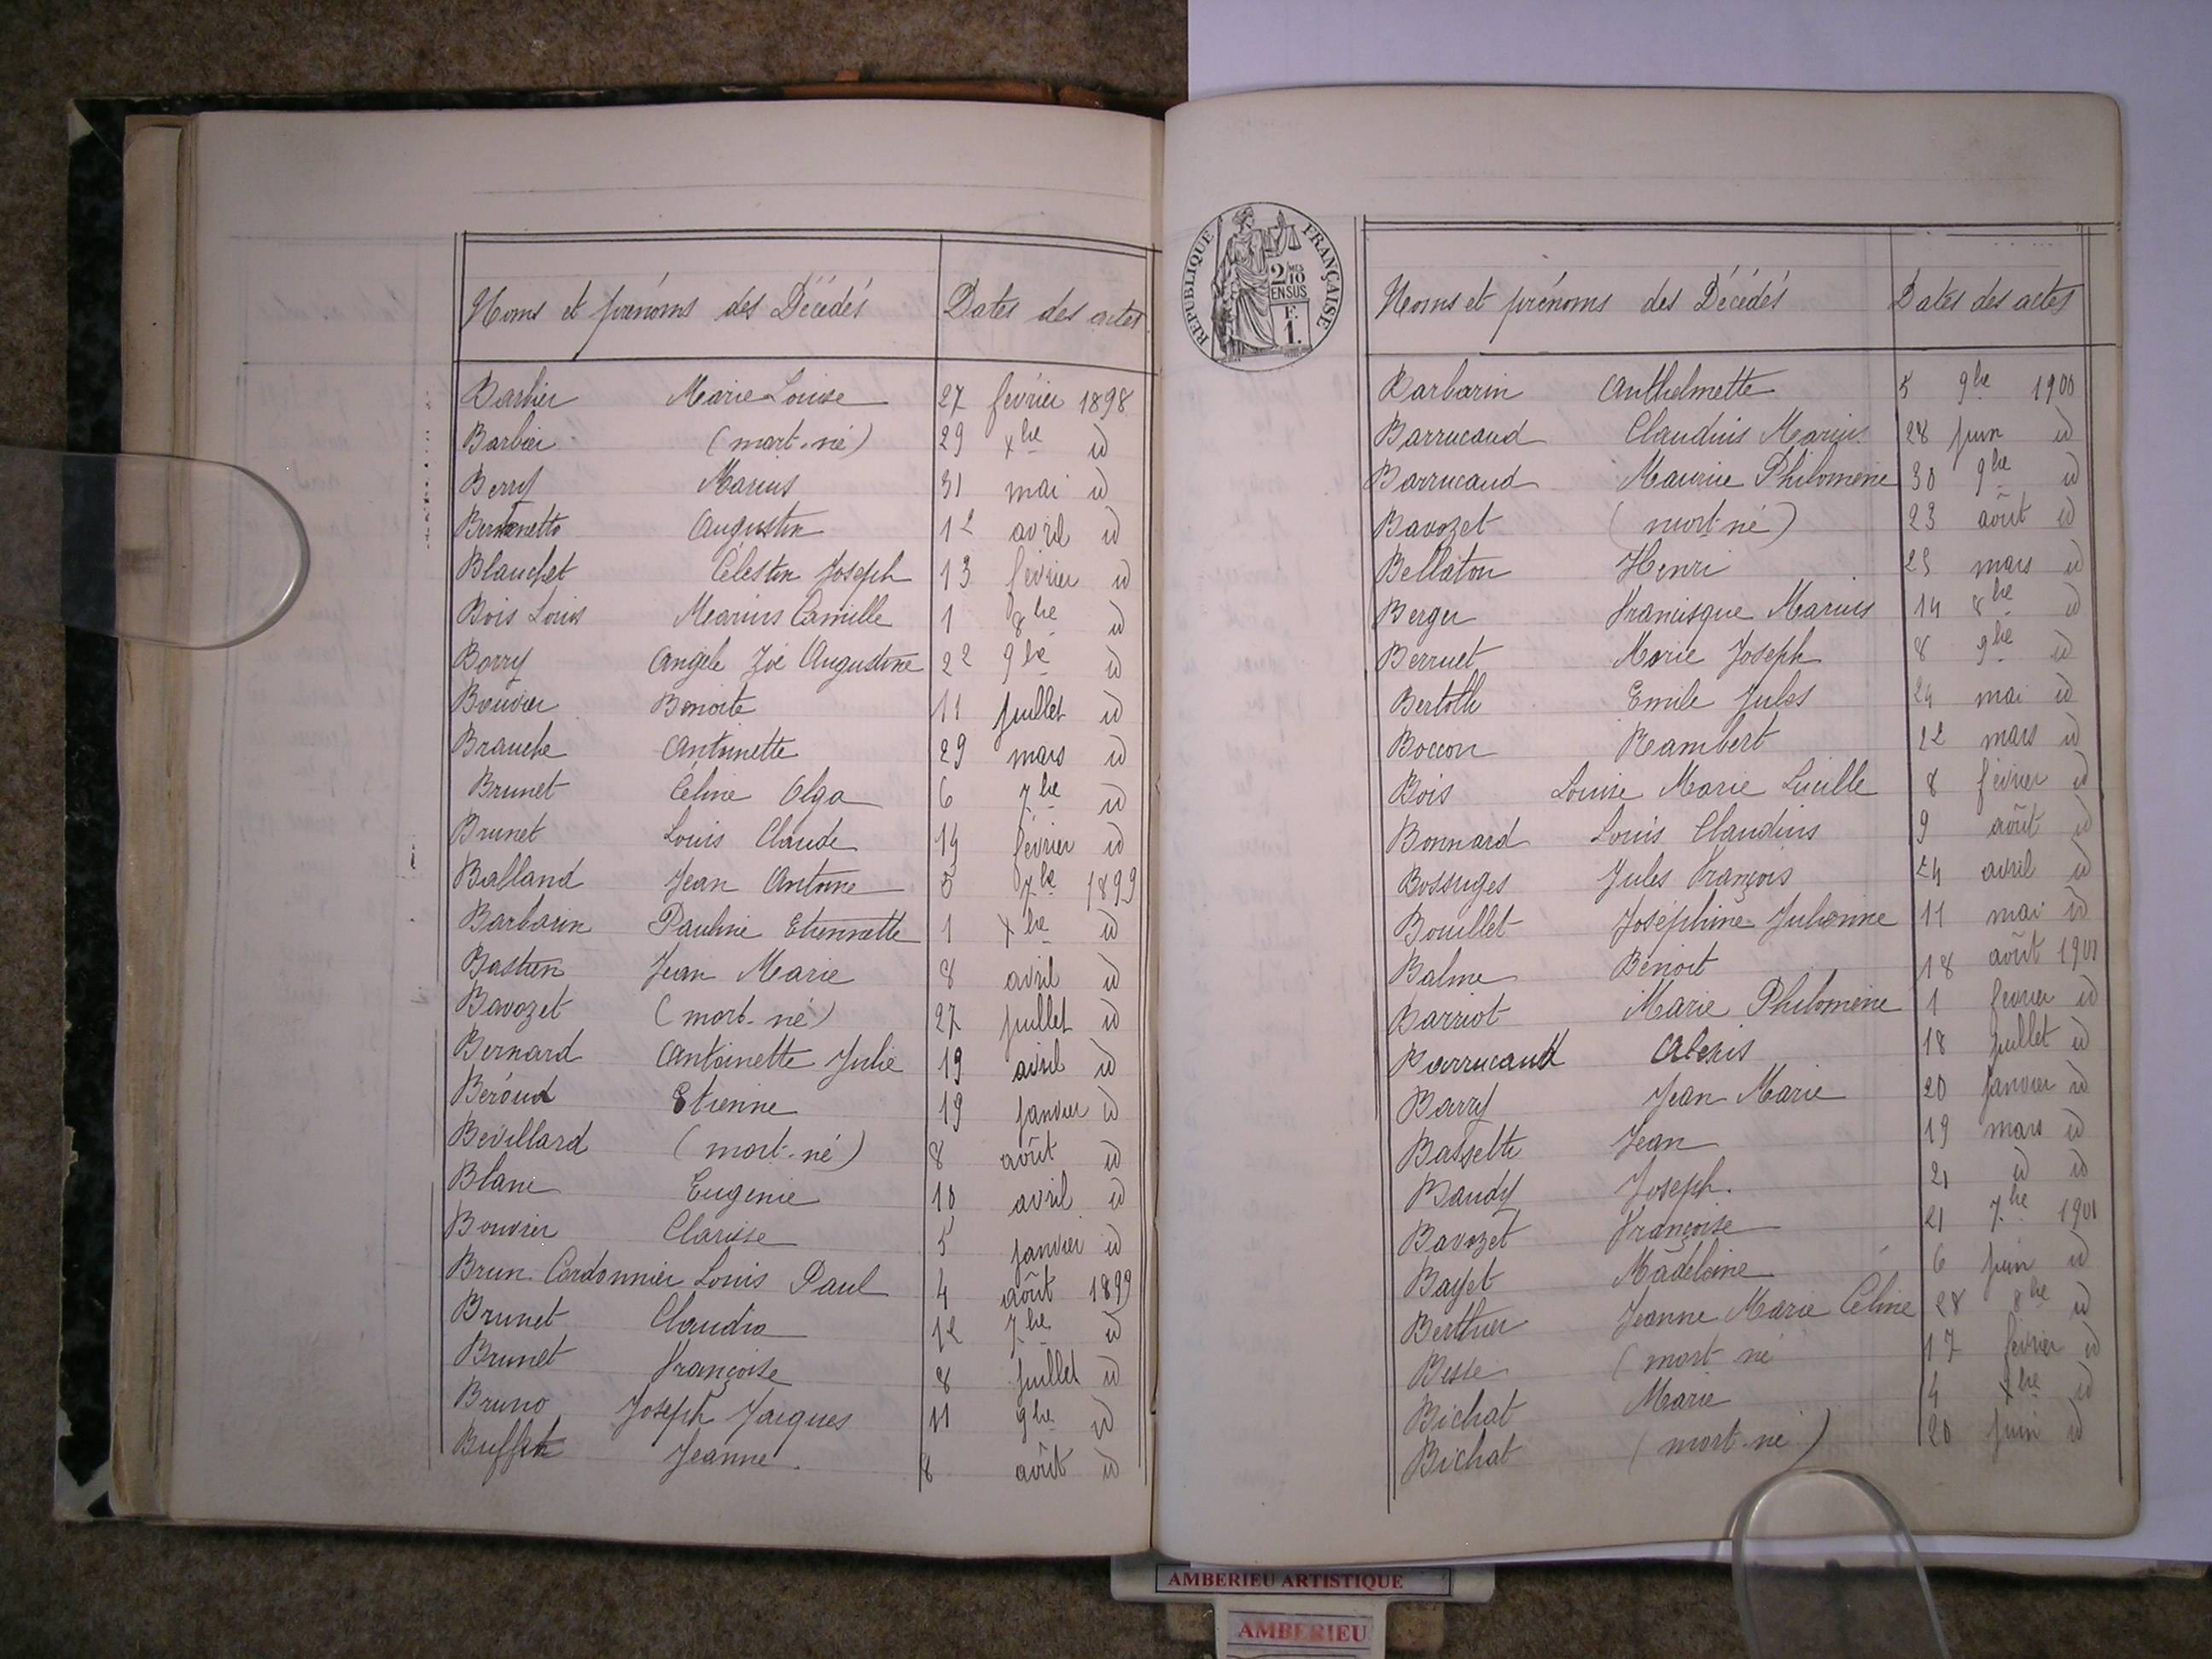 Noms et prénoms des Décédés Dates des actes
Barbier Marie Louise 27 février 1898
Barbier (mort-né) 29 xbre id
Berry Marius 31 mai id
Bertonetto Augustin 12 avril id
Blanchet Célestin Joseph 13 février id
Bois Louis Marius Camille 1 8bre id
Borry Angèle Zoé Augustine 22 9bre id
Bouvier Benoite 11 juillet id
Branche Antoinette 29 mars id
Brunet Céline Olga 6 7bre id
Brunet Louis Claude 14 février id
Balland Jean Antoine 5 7bre 1899
Barbarin Pauline Etiennette 1 xbre id
Bastien Jean Marie 8 avril id
Bavozet (mort-né) 27 juillet id
Bernard Antoinette Julie 19 avril id
Béroud Etienne 19 janvier id
Bévillard (mort-né) 8 août id
Blanc Eugénie 10 avril id
Bouvier Clarisse 5 janvier id
Brun-Cordonnier Louis Paul 4 août 1899
Brunet Claudia 12 7bre id
Brunet Françoise 8 juillet id
Bruno Joseph Jacques 11 9bre id
Jeanne 8 août id
REPUBLIQUE FRANÇAISE
2/10 MES
EN SUS
F.
1.
Noms et prénoms des Décédés Dates des actes
Barbarin Anthelmette 5 9bre 1900
Barrucaud Claudius Marius 28 juin id
Barrucaud Maurice Philomène 30 9bre id
Bavozet (mort-né) 23 août id
Bellaton Henri 25 mars id
Berger Francisque Marius 14 8bre id
Berruet Marie Joseph 8 9bre id
Emile Jules 24 mai id
Boccon Rambert 22 mars id
Bois Louise Marie Lucille 8 février id
Bonnard Louis Claudius 9 août id
Bossuges Jules François 24 avril id
Bouillet Joséphine Julienne 11 mai id
Balme Benoit 18 août 1901
Barriot Marie Philomène 1 février id
Barrucaud Alexis 18 juillet id
Barry Jean Marie 20 janvier id
Bassette Jean 19 mars id
Baudy Joseph. 21 id id
Bavozet Françoise 21 7bre 1901
Bayet Madeleine 6 juin id
Berthier Jeanne Marie Céline 28 8bre id
Besse (mort né 17 février id
Bichat Marie 4 xbre id
Bichat (mort-né) 20 juin id
AMBERIEU ARTISTIQUE
AMBERIEU